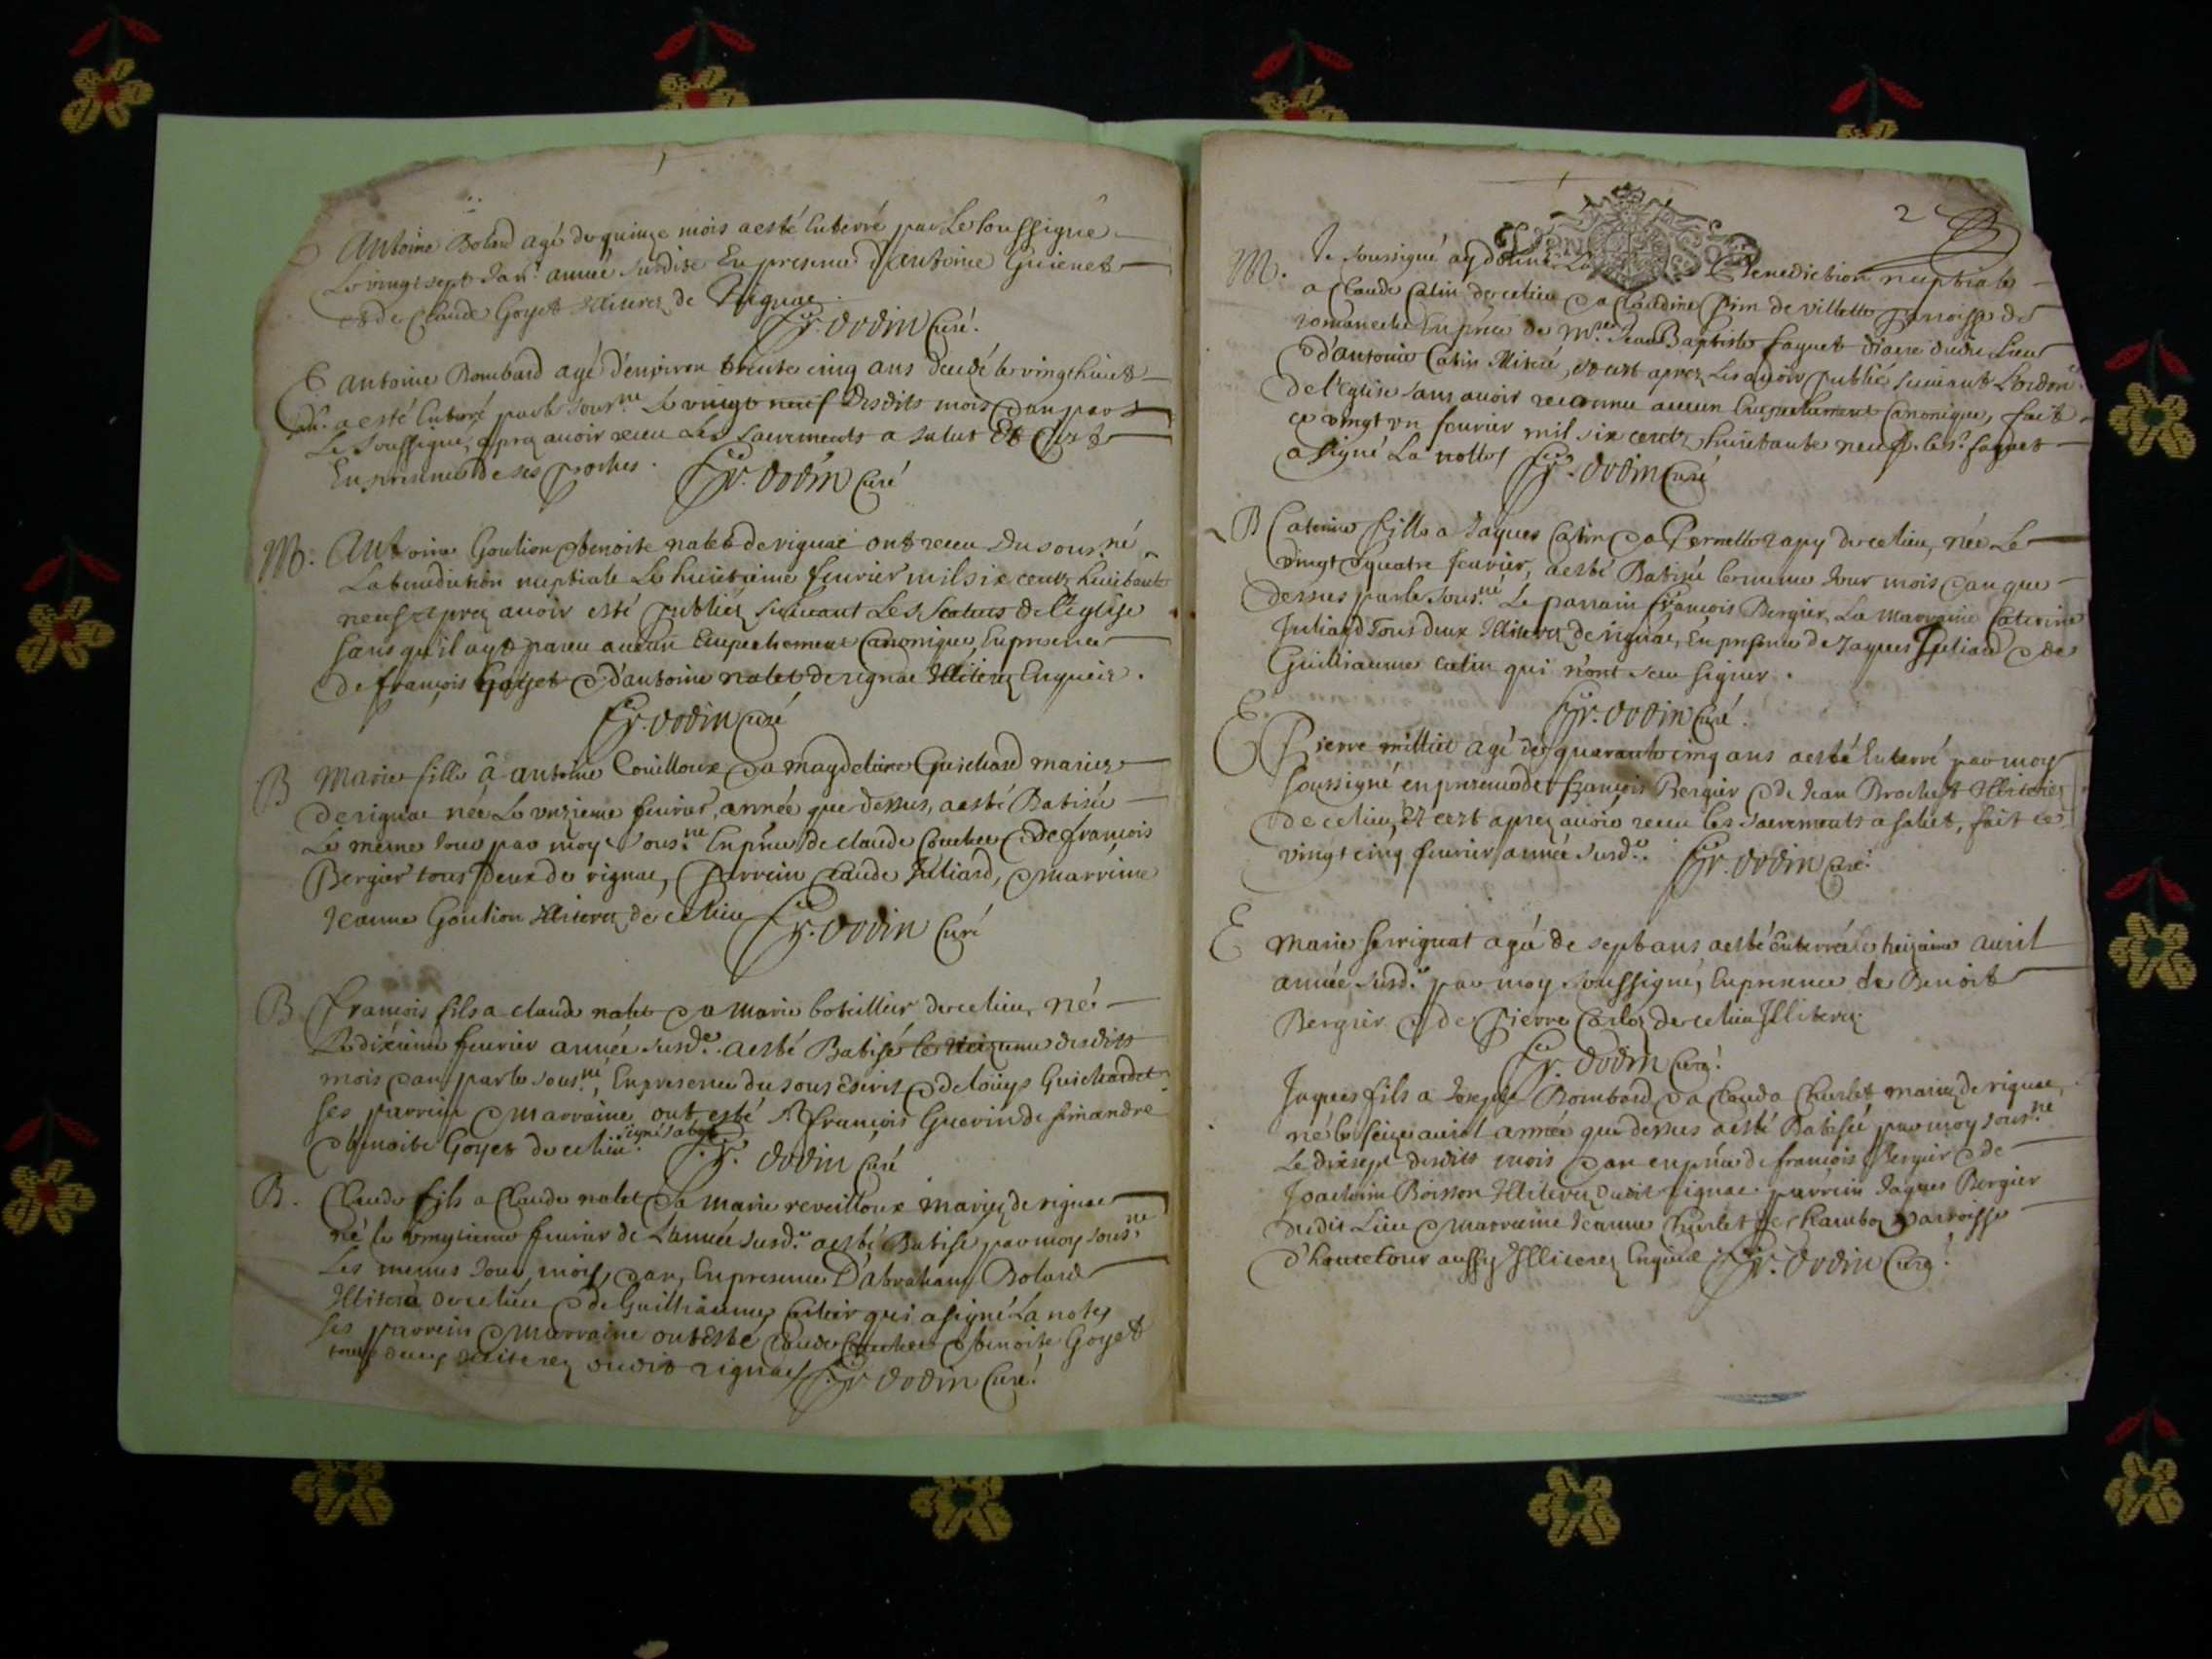 Antoine Bolard agé de quinze mois a esté Enterré par Le soussigné
Le vingt sept Jan.r année susdite En presence d'Antoine Guienet
et de Claude Goyet Illiterez de Rignac.
Fr. Dodin Curé.
E Antoine Bombard agé d'environ trente cinq ans decedé le vingt huict
Jan.r a esté Enterré par le sous.né Le vingt neuf Desdits mois et an par
Le Soussigné, apres avoir receu Les sacrements a salut Et C'est
En presence de ses proches. Fr. Dodin Curé
M. Antoine Goulion et benoite nalet de rignac ont receu Du sous.né
La benediction nuptiale Le huictieme fevrier mil six cents huictante
neuf apres avoir esté publiez suivant Les statuts de l'Eglise
sans qu'il ayt pareu aucun Empechement Canonique, En presence
de françois Goyet et d'antoine nalet de rignac Illiterez Enquis.
Fr. Dodin Curé
B Marie fille à antoine Couilloux et a magdelaine Guichard mariez
de rignac née Le onzieme fevrier, année que dessus, a esté Batisée
Le même Jour par moy sous.né En p̃nce de claude et de françois
Bergier tous deux de rignac, Parrein Claude Juliard, et marreine
Jeanne Goulion Illiterez de ce lieu Fr. Dodin Curé
B françois fils a claude nalet et a Marie boteillier de ce lieu, né
Le dixieme fevrier année susd.e a esté Batisé le desdits
mois et an par le sous.né, En presence du sous escrit et de louys Guichardet
ses parrein et marraine ont esté Sr françois Guerin de simandre
et benoite Goyet de ce lieu. Fr. Dodin Curé
B. Claude fils a Claude nalet et a Marie reveilloux mariez de rignac
né le vingtieme fevrier de L'année susd.e a esté Batisé par moy sous.né
Les memes Jour, mois, et an, En presence D'Abraham Bolard
Illiteré de ce lieu et de Guilliaume Catin qui a signé La note
ses parrein et marraine ont esté Claude et benoite Goyet
tous deux Illiterez dudit rignac Fr. Dodin Curé.
2
M. Je soussigné ay donné La Benediction nuptiale
a Claude Catin de ce lieu et a Claudine Pin de villette parroisse de
romaneche En p̃nce de M.re Jean Baptiste faguet diacre dudit Lieu
et d'antoine Catin Illiteré, et c'est apres Les avoir publié suivant L'ordon.
de l'Eglise sans avoir reconnu aucun Empechement Canonique, fait
ce vingt un fevrier mil six cents huictante neuf. le s.r faguet
a signé La notte Fr. Dodin Curé
B Caterine fille a Jaques Catin et a Pernette rapy de ce lieu, née Le
vingt quatre fevrier, a esté Batisée le meme Jour mois et an que
dessus par le Sous.né Le parrain françois Bergier, La marraine Caterine
Juliard Tous deux Illiterez de rignac, En presence de Jaques Juliard et de
Guilliaume Catin qui n'ont sceu signer.
Fr. Dodin Curé.
E Pierre milliet agé de quarante cinq ans a esté Enterré par moy
soussigné en presence de françois Bergier et de Jean Brochet Illiterez
de ce lieu, Et c'est apres avoir receu les sacrements a salut, fait ce
vingt cinq fevrier année susd.e. Fr. Dodin Curé.
E Marie serrignat agée de sept ans, a esté enterrée le avril
année susd.e par moy soussigné, En presence de Benoit
Bergier et de Pierre Carlez de ce lieu Illiterez
Fr. Dodin Curé.
Jaques fils a Joseph Bombard et a Clauda Churlet mariez de rignac
né le seize avril année que dessus a esté Batisé par moy sous.né
Le dixsept desdits mois et an en p̃nce de françois Bergier et de
Joachim Boisson Illiterez dudit rignac. parrein Jaques Bergier
dudit Lieu et marreine Jeanne Churlet de Rambo parroisse
d'hautecour aussy Illiterez Enquis Fr. Dodin Curé.